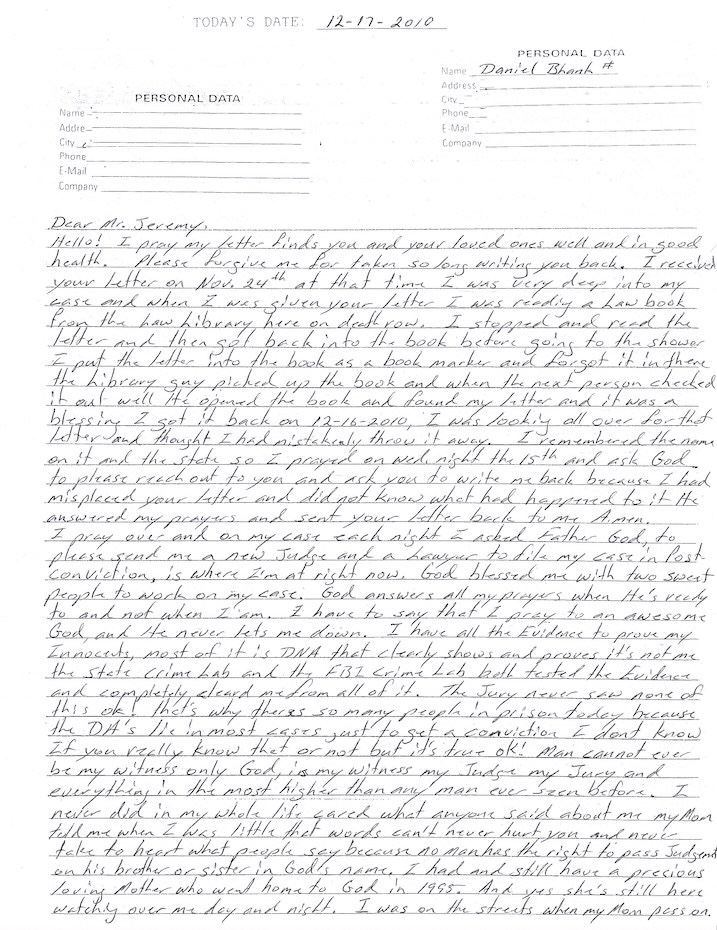 TODAY'S DATE: 12-17-2010
PERSONAL DATA
Name Daniel Bhank #
Address
City
Phone
E-Mail
Company
PERSONAL DATA
Name
Addre
City
Phone
E-Mail
Company
Dear Mr. Jeremy,
Hello! I pray my letter finds you and your loved ones well and in good
health. Please forgive me for taken so long writing you back. I received
your letter on Nov. 24th at that time I was very deep into my
case and when I was given your letter I was readig a Law book
from the Law Library here on death row. I stopped and read the
letter and then got back into the book before going to the shower
I put the letter into the book as a book marker and forgot it in there
the Library guy picked up the book and when the next person checked
it out well He opened the book and found my letter and it was a
blessing I got it back on 12-16-2010, I was looking all over for that
letter and thought I had mistakenly throw it away. I remembered the name
on it and the state so I prayed on wed. night the 15th and ask God
to please reach out to you and ask you to write me back because I had
misplaced your letter and did not know what had happened to it He
answered my prayers and sent your letter back to me Amen.
I pray over and on my case each night I asked Father God, to
please send me a new Judge and a Lawyer to file my case in Post-
conviction, is where I'm at right now. God blessed me with two sweet
people to work on my case. God answers all my prayers when He's ready
to and not when I am. I have to say that I pray to an awesome
God, and He never lets me down. I have all the Evidence to prove my
Innocents, most of it is DNA that clearly shows and proves it's not me
the state crime Lab and the FBI Crime Lab both tested the Evidence
and completely cleard me from all of it. The Jury never saw none of
this ok! that's why theres so many people in prison today because
the DA's lie in most cases just to get a conviction I dont know
If you really know that or not but it's true ok! Man cannot ever
be my witness only God, is my witness my Judge my Jury and
everything in the most higher than any man ever seen before. I
never did in my whole life cared what anyone said about me my Mom
told me when I was little that words can't never hurt you and never
take to heart what people say because no man has the right to pass Judgemt
on his brother or sister in God's name. I had and still have a precious
loving Mother who went home to God in 1995. And yes she's still here
watching over me day and night. I was on the streets when my Mom pass on.